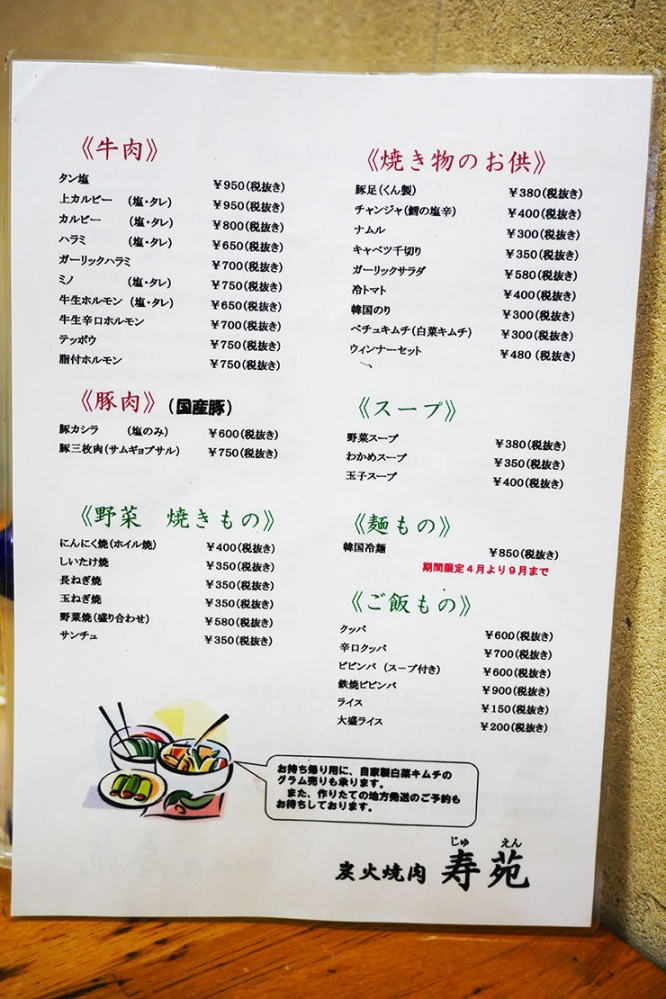 《牛肉》
タン塩 ¥950(税抜き)
上カルビー (塩・タレ) ¥950(税抜き)
カルビー (塩・タレ) ¥800(税抜き)
ハラミ (塩・タレ) ¥650(税抜き)
ガーリックハラミ ¥700(税抜き)
ミノ (塩・タレ) ¥750(税抜き)
牛生ホルモン (塩・タレ) ¥650(税抜き)
牛生辛口ホルモン ¥700(税抜き)
テッポウ ¥750(税抜き)
脂付ホルモン ¥750(税抜き)
《豚肉》(国産豚)
豚カシラ (塩のみ) ¥600(税抜き)
豚三枚肉(サムギョプサル) ¥750(税抜き)
《野菜 焼きもの》
にんにく焼(ホイル焼) ¥400(税抜き)
しいたけ焼 ¥350(税抜き)
長ねぎ焼 ¥350(税抜き)
玉ねぎ焼 ¥350(税抜き)
野菜焼(盛り合わせ) ¥580(税抜き)
サンチュ ¥350(税抜き)
《焼き物のお供》
豚足(くん製) ¥380(税抜き)
チャンジャ(鱈の塩辛) ¥400(税抜き)
ナムル ¥300(税抜き)
キャベツ千切り ¥350(税抜き)
ガーリックサラダ ¥580(税抜き)
冷トマト ¥400(税抜き)
韓国のり ¥300(税抜き)
ペチュキムチ(白菜キムチ) ¥300(税抜き)
ウィンナーセット ¥480(税抜き)
《スープ》
野菜スープ ¥380(税抜き)
わかめスープ ¥350(税抜き)
玉子スープ ¥400(税抜き)
《麺もの》
韓国冷麺 ¥850(税抜き)
期間限定4月より9月まで
《ご飯もの》
クッパ ¥600(税抜き)
辛口クッパ ¥700(税抜き)
ビビンバ (スープ付き) ¥600(税抜き)
鉄焼ビビンバ ¥900(税抜き)
ライス ¥150(税抜き)
大盛ライス ¥200(税抜き)
お持ち帰り用に、自家製白菜キムチの
グラム売りも承ります。
また、作りたての地方発送のご予約も
お持ちしております。
じゅ えん
炭火焼肉 寿苑